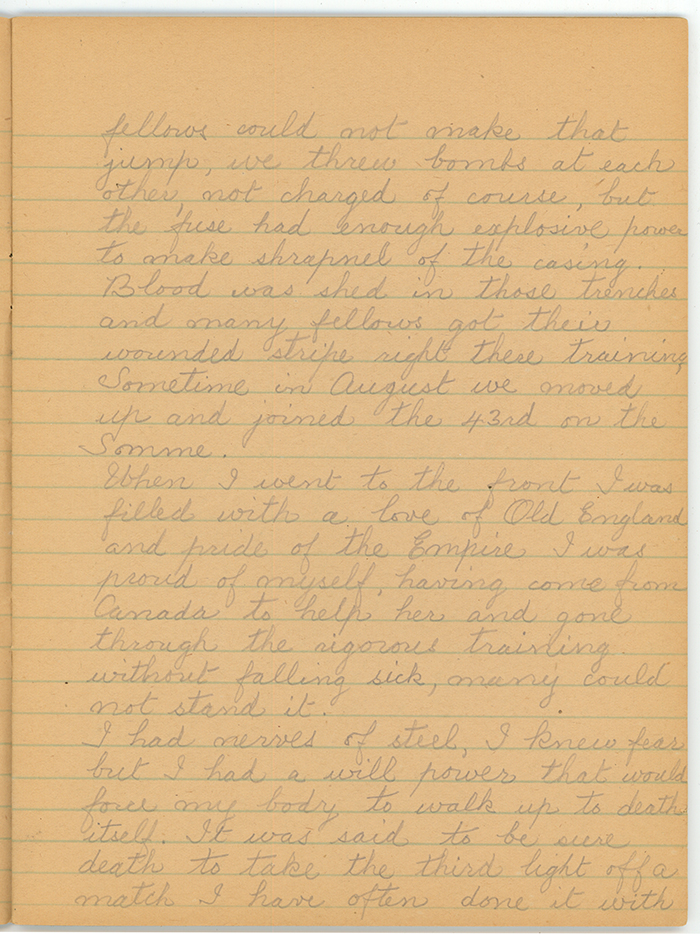 fellows could not make that
jump, we threw bombs at each
other, not charged of course, but
the fuse had enough explosive power
to make shrapnel of the casing.
Blood was shed in those trenches
and many fellows got their
wounded stripe right there training
Sometime in August we moved
up and joined the 43rd on the
Somme.
When I went to the front I was
filled with a love of Old England
and pride of the Empire I was
proud of myself, having come from
Canada to help her and gone
through the rigorous training
without falling sick, many could
not stand it.
I had nerves of steel, I knew fear
but I had a will power that would
force my body to walk up to death
itself. It was said to be sure
death to take the third light off a
match I have often done it with